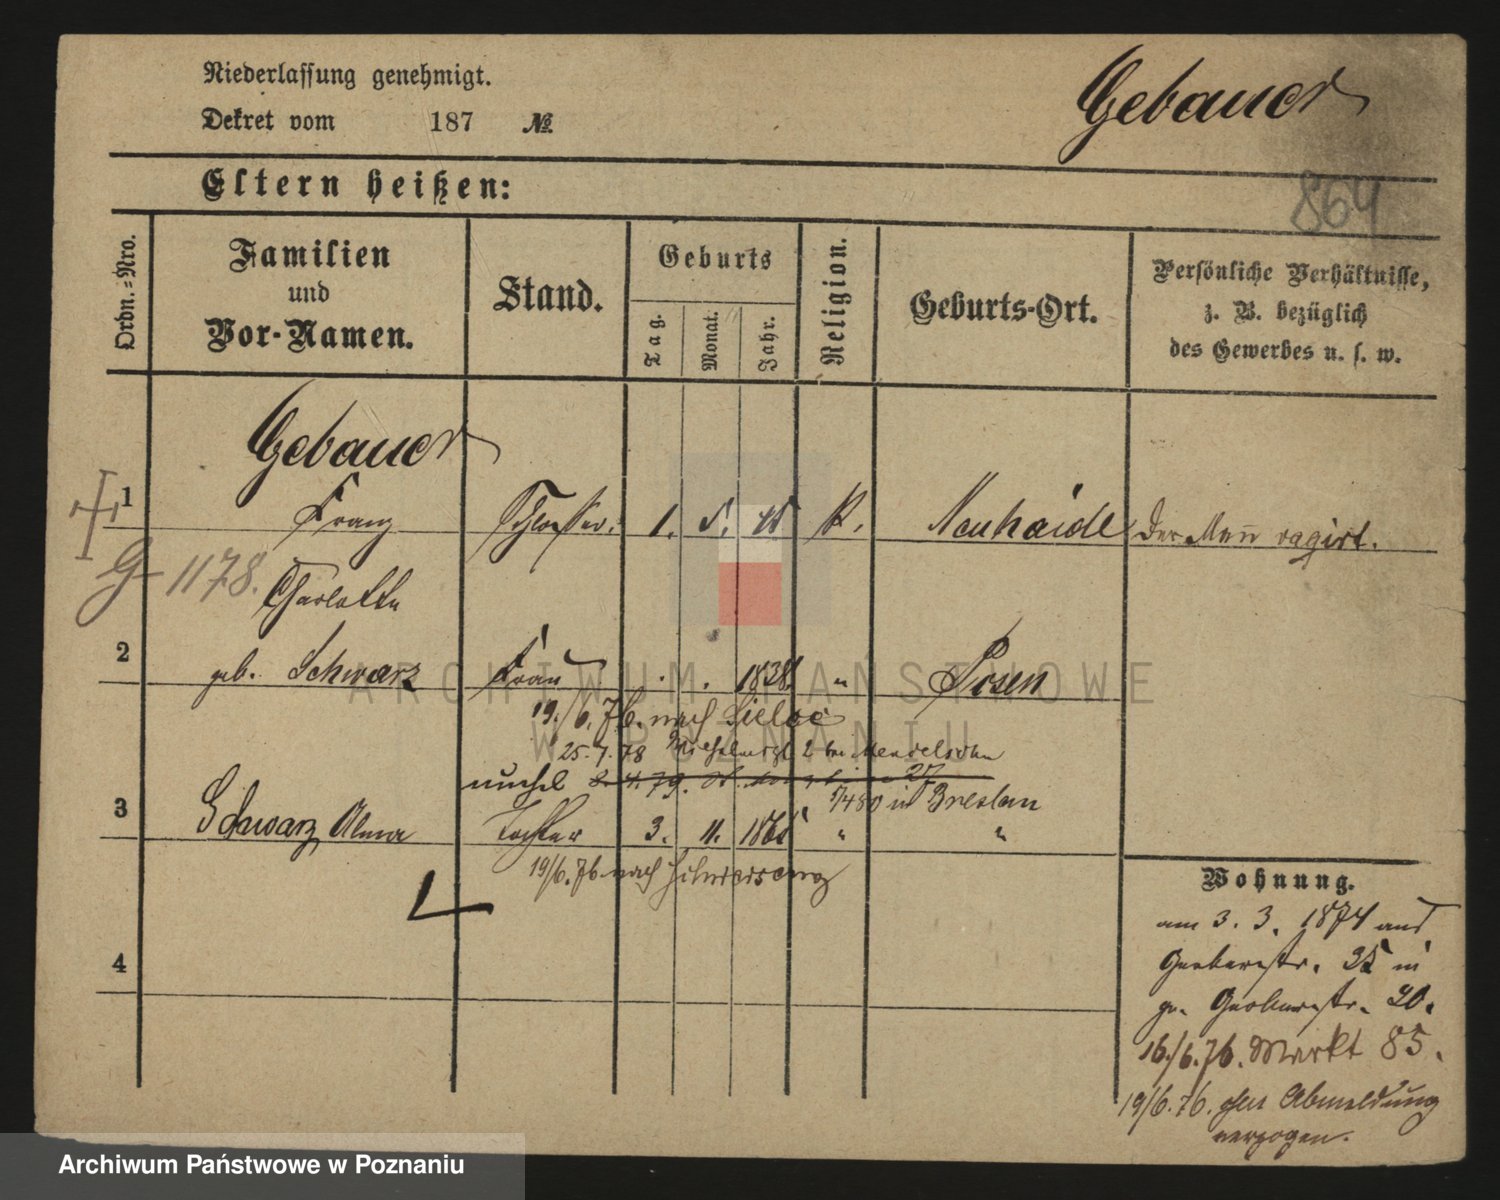 Niederlassung genehmigt.
Gebauer
Dekret vom 187 №
864
Eltern heißen:
Ordn.-Nro.
Familien
und
Vor-Namen.
Stand.
Geburts
Tag.
Monat.
Jahr.
Religion.
Geburts-Ort.
Persönliche Verhältnisse,
z. B. bezüglich
des Gewerbes u. s. w.
Gebauer
1 Franz Schlosser. 1. 5. K. Neuhaide Der Mann
G 1178.
Charlotte
2 geb. Schwarz Frau 1838. " Posen
19./6. 76. nach
25.7.78 2 bei Mendelsohn
in Breslau
3 Schwarz Alma Tochter 3. 11. " "
19/6. 76 nach
4
Wohnung.
am 3. 3. 1874 aus
Gerberstr. 35 in
gr. Gerberstr. 20.
16./6. 76. Markt 85.
19/6. 76. Abmeldung
verzogen.
ARCHIWUM PAŃSTWOWE
W POZNANIU
Archiwum Państwowe w Poznaniu